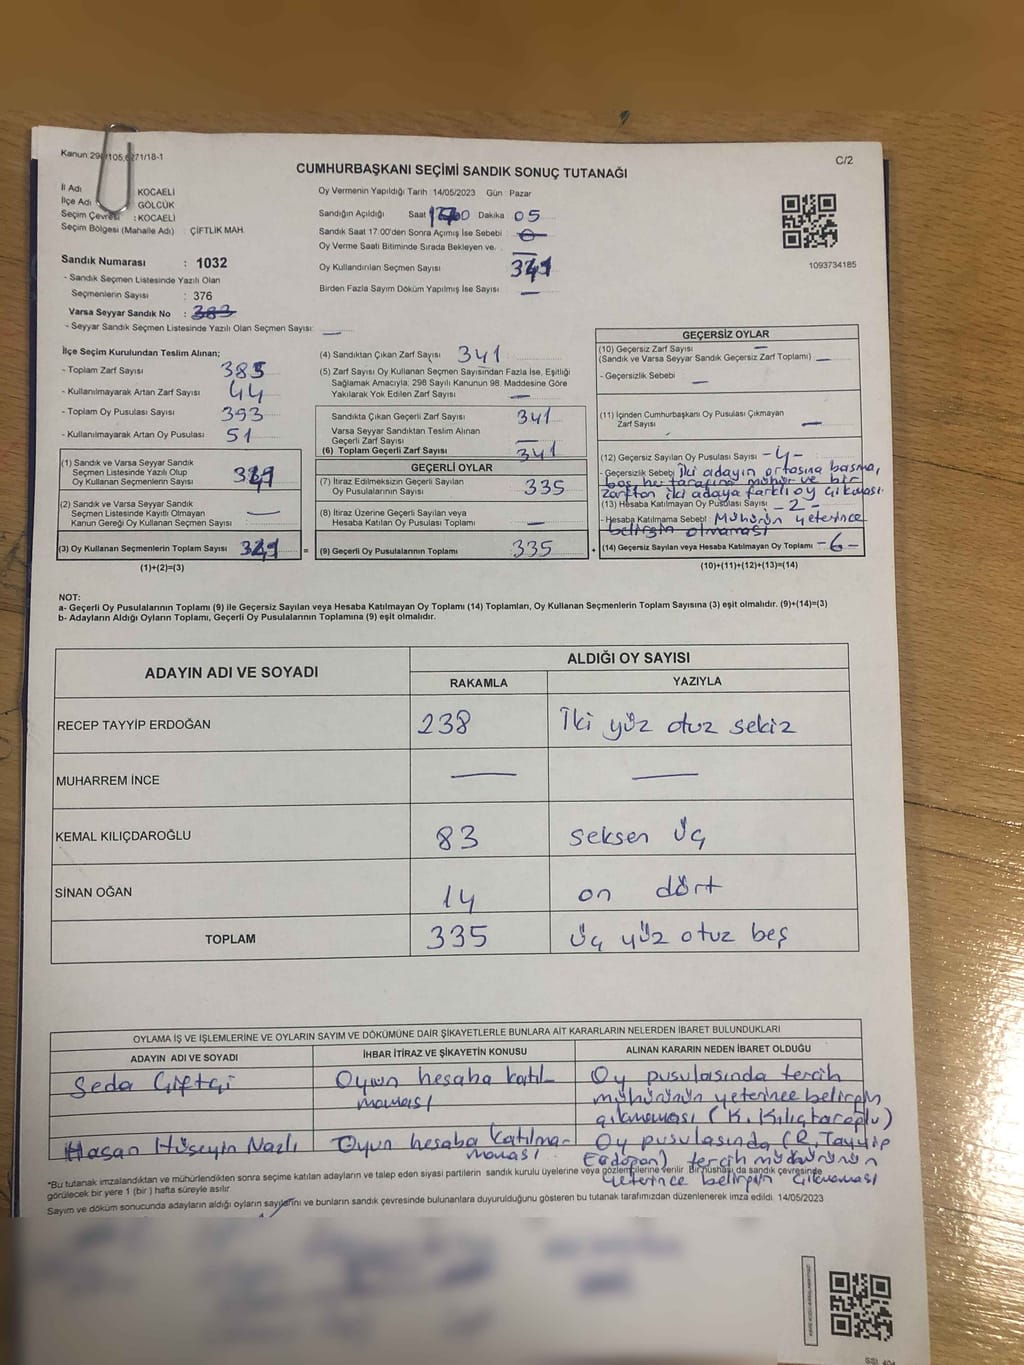 Kanun 298/105,6271/18-1
C/2
CUMHURBAŞKANI SEÇİMİ SANDIK SONUÇ TUTANAĞI
İl Adı : KOCAELİ
İlçe Adı : GÖLCÜK
Seçim Çevresi : KOCAELİ
Seçim Bölgesi (Mahalle Adı) : ÇİFTLİK MAH.
Sandık Numarası : 1032
- Sandık Seçmen Listesinde Yazılı Olan
Seçmenlerin Sayısı : 376
Varsa Seyyar Sandık No : 383
- Seyyar Sandık Seçmen Listesinde Yazılı Olan Seçmen Sayısı: —
Oy Vermenin Yapıldığı Tarih 14/05/2023 Gün Pazar
Sandığın Açıldığı Saat Dakika 05
Sandık Saat 17:00'den Sonra Açımış İse Sebebi
Oy Verme Saati Bitiminde Sırada Bekleyen ve. —
Oy Kullandırılan Seçmen Sayısı 341
Birden Fazla Sayım Döküm Yapılmış İse Sayısı —
1093734185
İlçe Seçim Kurulundan Teslim Alınan;
- Toplam Zarf Sayısı 385
- Kullanılmayarak Artan Zarf Sayısı 44
- Toplam Oy Pusulası Sayısı 393
- Kullanılmayarak Artan Oy Pusulası 51
(1) Sandık ve Varsa Seyyar Sandık
Seçmen Listesinde Yazılı Olup
Oy Kullanan Seçmen Sayısı 341
(2) Sandık ve Varsa Seyyar Sandık
Seçmen Listesinde Kayıtlı Olmayan
Kanun Gereği Oy Kullanan Seçmen Sayısı —
(3) Oy Kullanan Seçmenlerin Toplam Sayısı 341 =
(1)+(2)=(3)
(4) Sandıktan Çıkan Zarf Sayısı 341
(5) Zarf Sayısı Oy Kullanan Seçmen Sayısından Fazla İse, Eşitliği
Sağlamak Amacıyla; 298 Sayılı Kanunun 98. Maddesine Göre
Yakılarak Yok Edilen Zarf Sayısı —
Sandıkta Çıkan Geçerli Zarf Sayısı 341
Varsa Seyyar Sandıktan Teslim Alınan
Geçerli Zarf Sayısı —
(6) Toplam Geçerli Zarf Sayısı 341
GEÇERLİ OYLAR
(7) İtiraz Edilmeksizin Geçerli Sayılan
Oy Pusulalarının Sayısı 335
(8) İtiraz Üzerine Geçerli Sayılan veya
Hesaba Katılan Oy Pusulası Toplamı —
(9) Geçerli Oy Pusulalarının Toplamı 335 +
GEÇERSİZ OYLAR
(10) Geçersiz Zarf Sayısı —
(Sandık ve Varsa Seyyar Sandık Geçersiz Zarf Toplamı) —
- Geçersizlik Sebebi —
(11) İçinden Cumhurbaşkanı Oy Pusulası Çıkmayan
Zarf Sayısı —
(12) Geçersiz Sayılan Oy Pusulası Sayısı -4-
- Geçersizlik Sebebi İki adayın ortasına basma,
boş her tarafına mühür ve bir
zarftan iki adaya farklı oy çıkması
(13) Hesaba Katılmayan Oy Pusulası Sayısı -2-
- Hesaba Katılmama Sebebi Mühürün yeterince
belirgin olmaması
(14) Geçersiz Sayılan veya Hesaba Katılmayan Oy Toplamı -6-
(10)+(11)+(12)+(13)=(14)
NOT:
a- Geçerli Oy Pusulalarının Toplamı (9) ile Geçersiz Sayılan veya Hesaba Katılmayan Oy Toplamı (14) Toplamları, Oy Kullanan Seçmenlerin Toplam Sayısına (3) eşit olmalıdır. (9)+(14)=(3)
b- Adayların Aldığı Oyların Toplamı, Geçerli Oy Pusulalarının Toplamına (9) eşit olmalıdır.
ADAYIN ADI VE SOYADI ALDIĞI OY SAYISI
RAKAMLA YAZIYLA
RECEP TAYYİP ERDOĞAN 238 İki yüz otuz sekiz
MUHARREM İNCE — —
KEMAL KILIÇDAROĞLU 83 seksen üç
SİNAN OĞAN 14 on dört
TOPLAM 335 üç yüz otuz beş
OYLAMA İŞ VE İŞLEMLERİNE VE OYLARIN SAYIM VE DÖKÜMÜNE DAİR ŞİKAYETLERLE BUNLARA AİT KARARLARIN NELERDEN İBARET BULUNDUKLARI
ADAYIN ADI VE SOYADI İHBAR İTİRAZ VE ŞİKAYETİN KONUSU ALINAN KARARIN NEDEN İBARET OLDUĞU
Seda Çiftçi Oyun hesaba katıl- Oy pusulasında tercih
maması mühürünün yeterince belirgin
çıkmaması (K. Kılıçtaroğlu)
Hasan Hüseyin Nazlı Oyun hesaba katılma- Oy pusulasında (R. Tayyip
maması Erdoğan) tercih mühürünün
yeterince belirgin çıkmaması
*Bu tutanak imzalandıktan ve mühürlendikten sonra seçime katılan adayların ve talep eden siyasi partilerin sandık kurulu üyelerine veya gözlemcilerine verilir. Bir nüshası da sandık çevresinde
görülecek bir yere 1 (bir ) hafta süreyle asılır
Sayım ve döküm sonucunda adayların aldığı oyların sayılarını ve bunların sandık çevresinde bulunanlara duyurulduğunu gösteren bu tutanak tarafımızdan düzenlenerek imza edildi. 14/05/2023